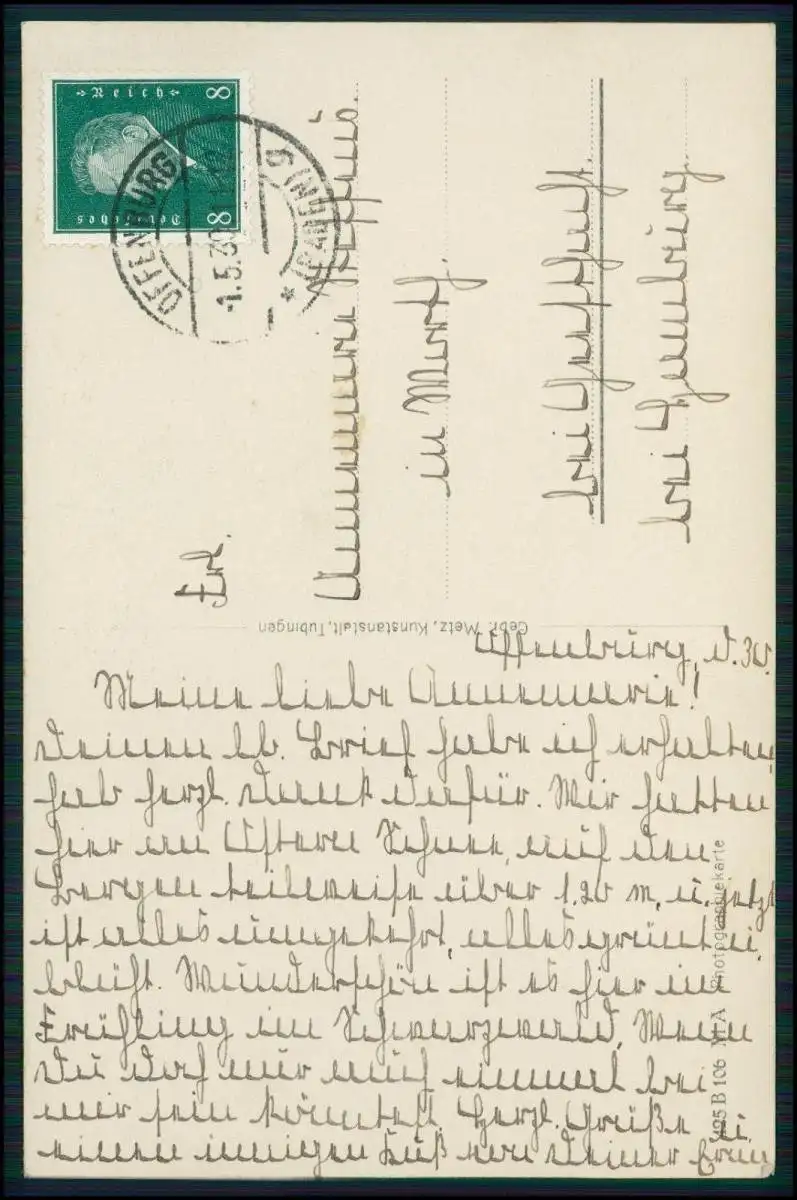 Deutsches Reich
8 8
OFFENBURG (BADEN)
1.5.30
Frl.
Annemarie
in
bei
bei
Gebr. Metz, Kunstanstalt, Tübingen
425 B 106 M A Photographiekarte
Offenburg,
Meine liebe Annemarie!
Deinen lb. Brief habe ich erhalten,
hab herzl. Dank dafür. Wir hatten
hier an Ostern Schnee, auf den
Bergen teilweise über 1,20 m, u. jetzt
ist alles umgekehrt, alles grünt u.
blüht. Wunderschön ist es hier im
Frühling im Schwarzwald, Wenn
Du doch nur auch einmal bei
mir sein könntest. Herzl. Grüße u.
einen innigen Kuß von Deiner